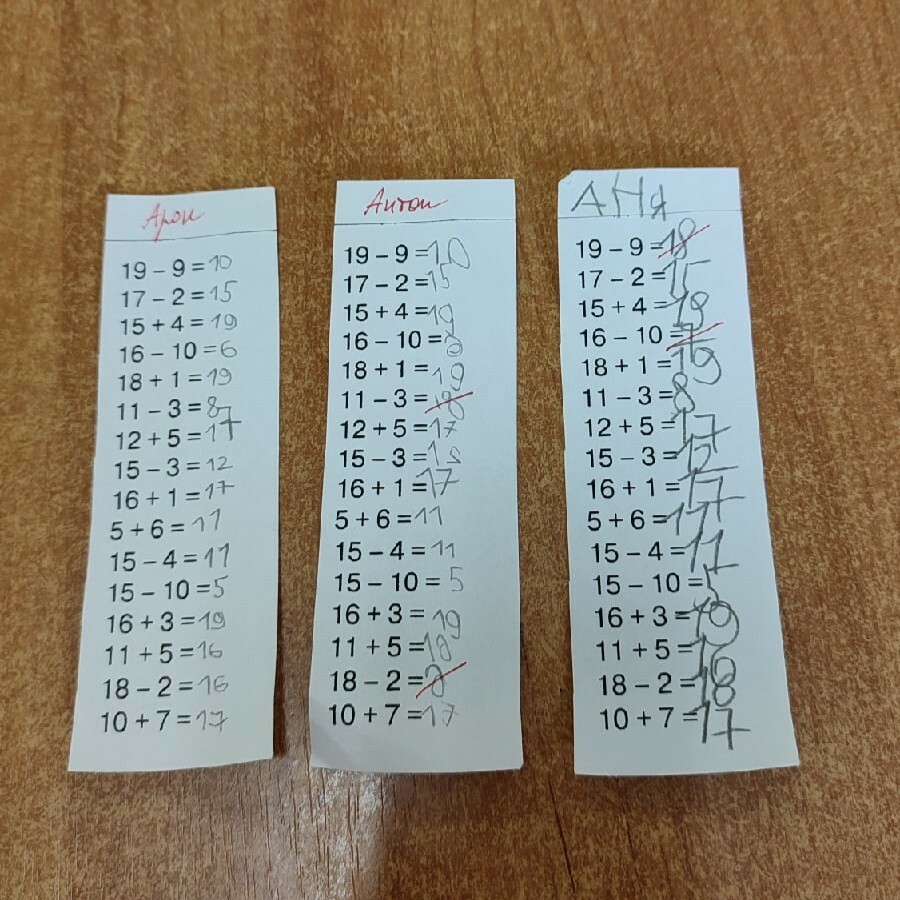 Арон
19 – 9 = 10
17 – 2 = 15
15 + 4 = 19
16 – 10 = 6
18 + 1 = 19
11 – 3 = 8
12 + 5 = 17
15 – 3 = 12
16 + 1 = 17
5 + 6 = 11
15 – 4 = 11
15 – 10 = 5
16 + 3 = 19
11 + 5 = 16
18 – 2 = 16
10 + 7 = 17
Антон
19 – 9 = 10
17 – 2 = 15
15 + 4 = 19
16 – 10 =
18 + 1 = 19
11 – 3 =
12 + 5 = 17
15 – 3 =
16 + 1 = 17
5 + 6 = 11
15 – 4 = 11
15 – 10 = 5
16 + 3 = 19
11 + 5 =
18 – 2 =
10 + 7 = 17
АНЯ
19 – 9 = 18
17 – 2 = 15
15 + 4 = 19
16 – 10 =
18 + 1 = 19
11 – 3 = 8
12 + 5 = 17
15 – 3 = 12
16 + 1 = 17
5 + 6 = 11
15 – 4 = 11
15 – 10 = 5
16 + 3 = 19
11 + 5 = 16
18 – 2 =
10 + 7 = 17